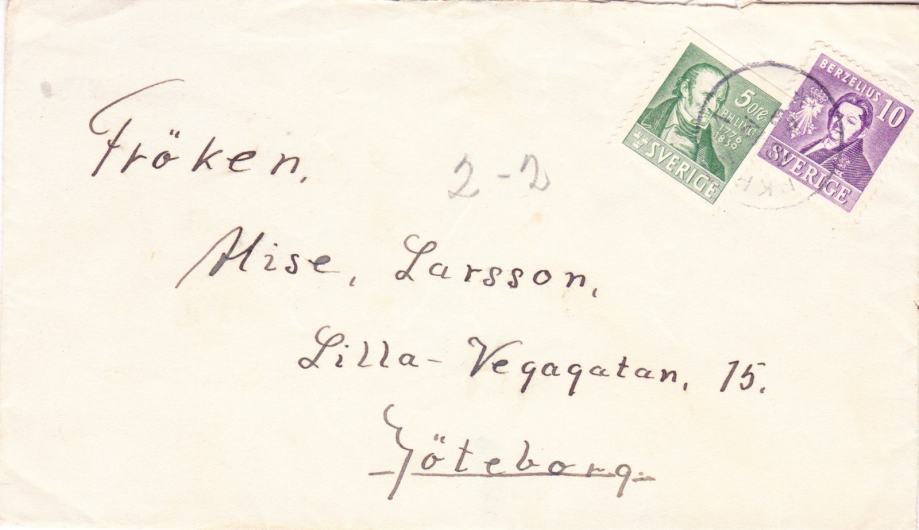 BERZELIUS 10
5 öre
P.H. LING
1776
1839
SVERIGE
SVERIGE
Fröken,
2-2
Alise, Larsson,
Lilla-Vegagatan, 15.
Göteborg.